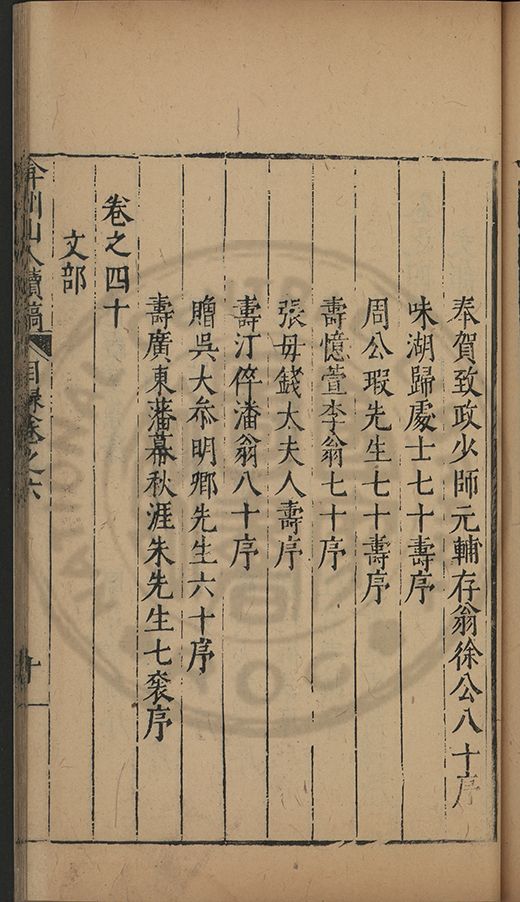 奉賀致政少師元輔存翁徐公八十序
味湖歸處士七十壽序
周公瑕先生七十壽序
壽憶萱李翁七十序
張母錢太夫人壽序
壽汀倅潘翁八十序
贈吳大叅明卿先生六十序
壽廣東藩幕秋涯朱先生七袠序
卷之四十
文部
弇州山人續稿 目錄卷之六